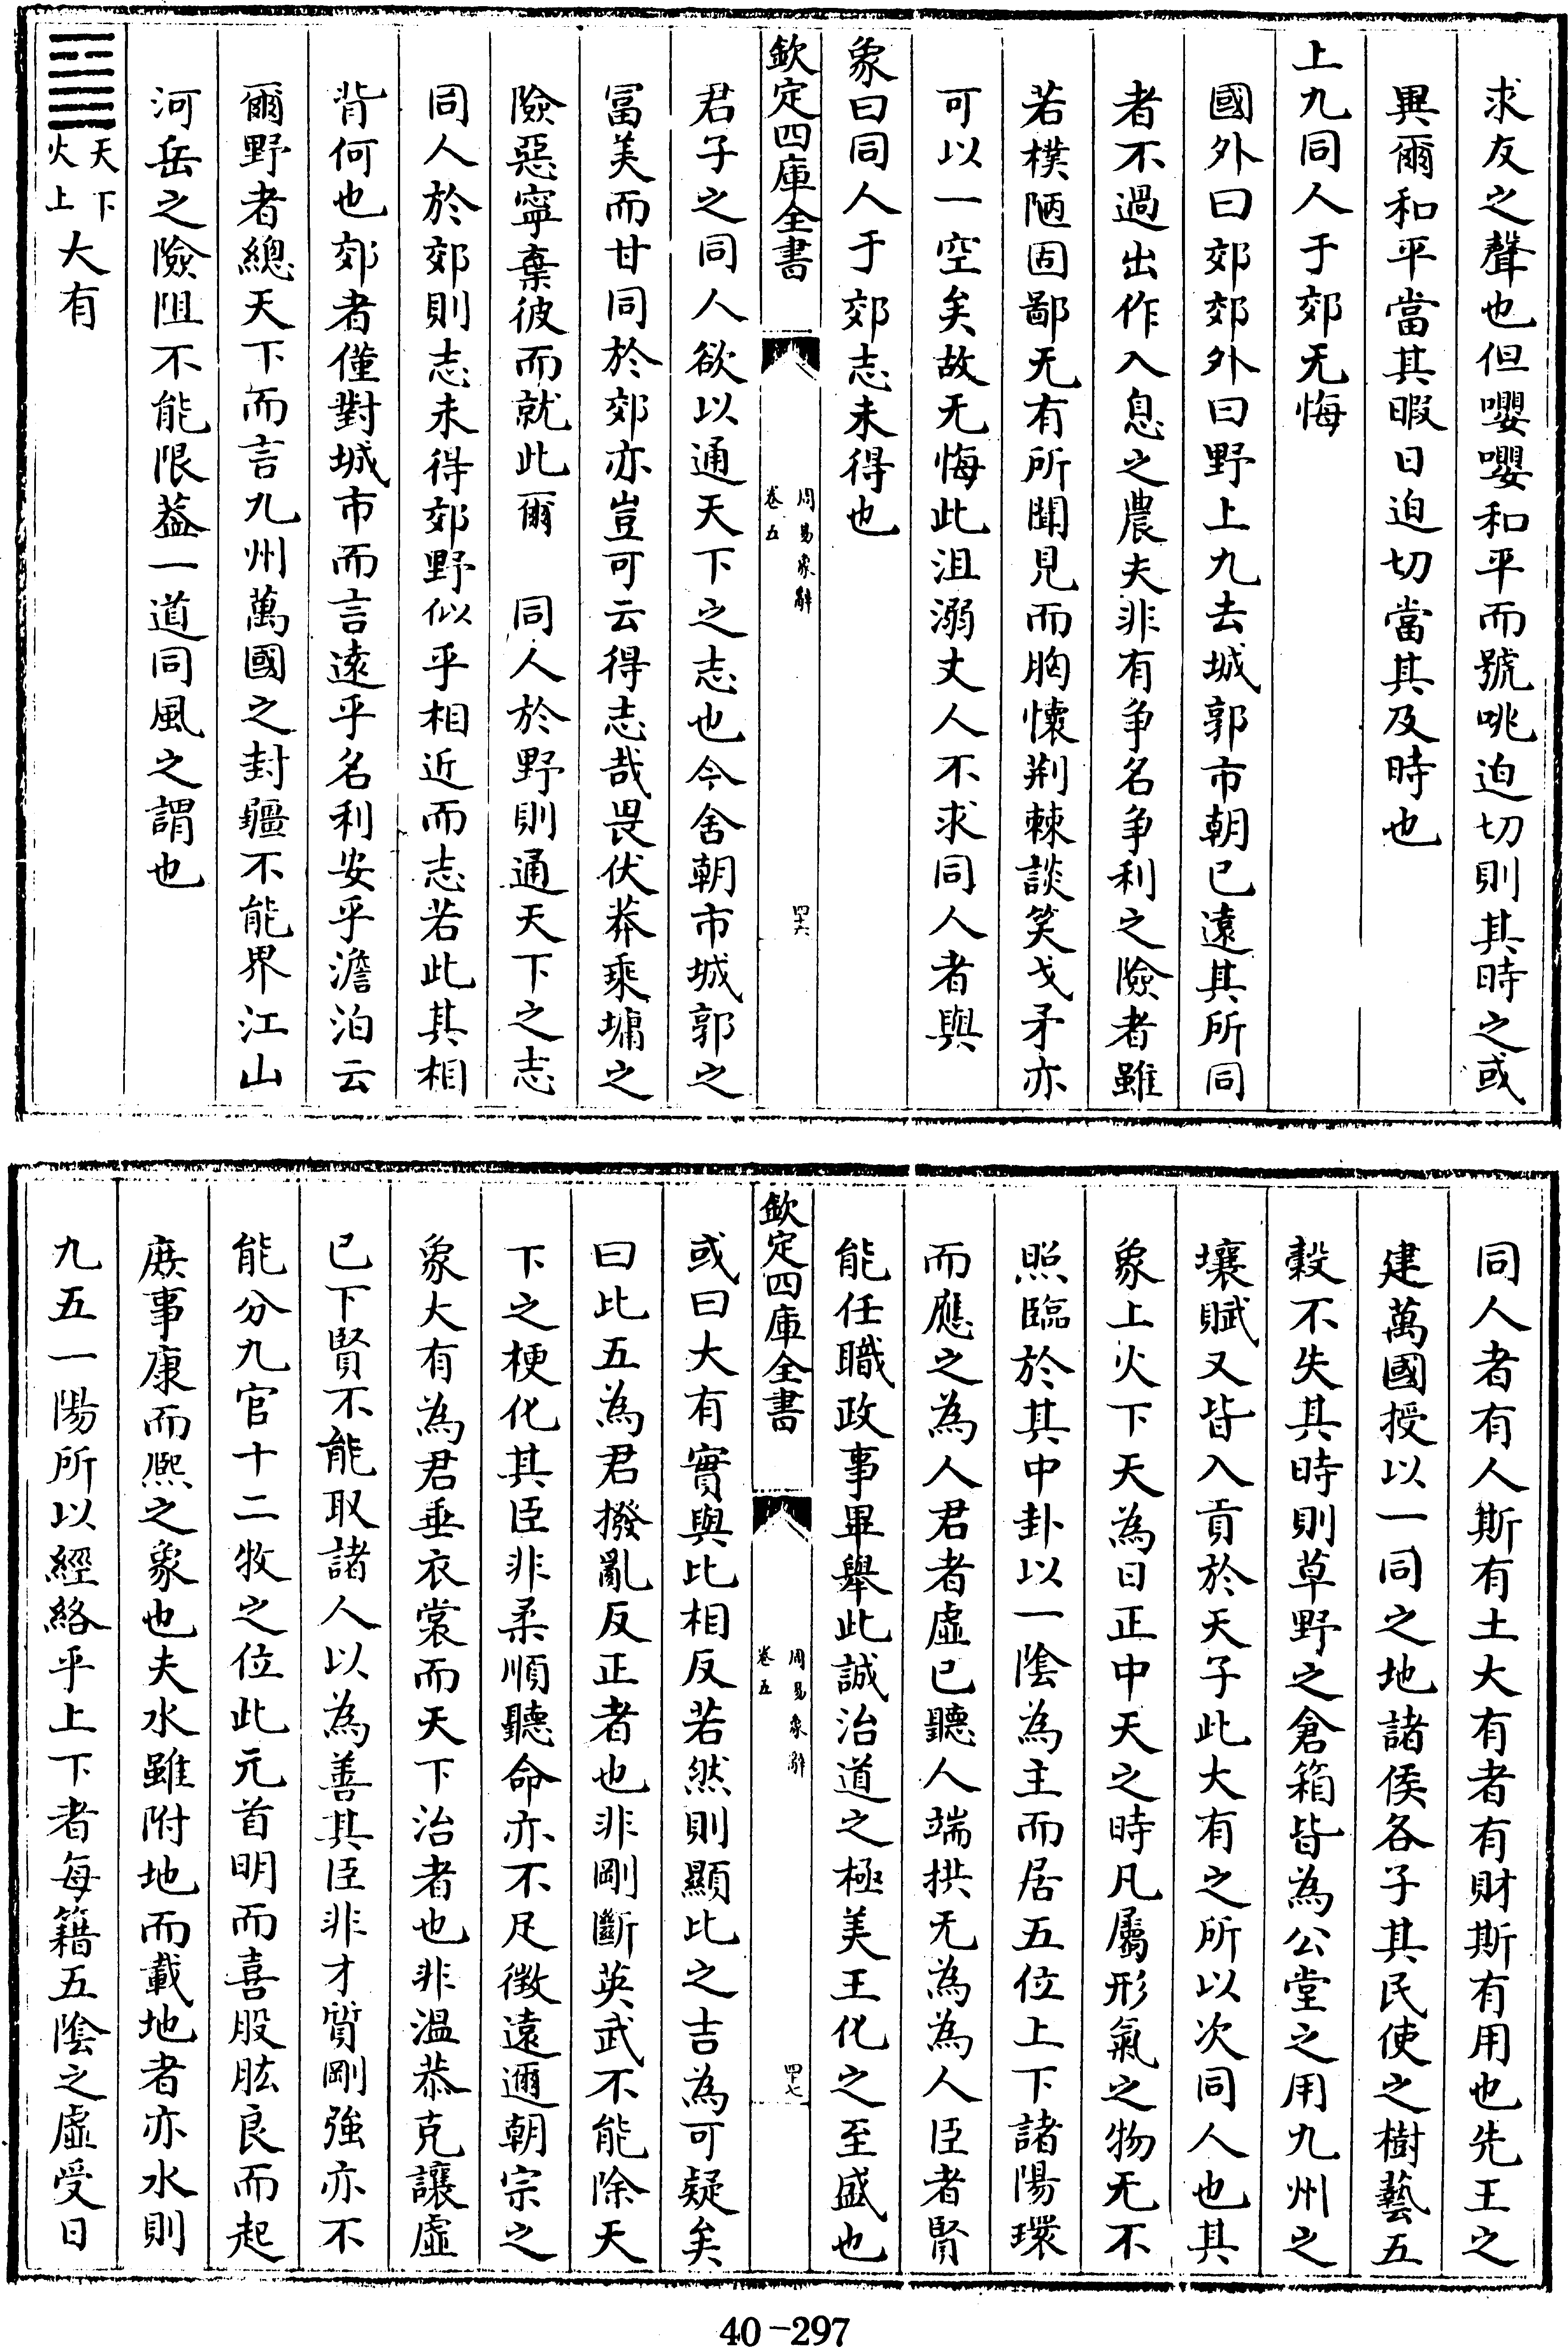 求友之聲也但嚶嚶和平而號咷迫切則其時之或
異爾和平當其暇日迫切當其及時也
上九同人于郊无悔
國外曰郊郊外曰野上九去城郭市朝已遠其所同
者不過出作入息之農夫非有争名争利之險者雖
若樸陋固鄙无有所聞見而胸懐荆棘談笑戈矛亦
可以一空矣故无悔此沮溺丈人不求同人者與
象曰同人于郊志未得也
欽定四庫全書
周易象辭
卷五
四十六
君子之同人欲以通天下之志也今舍朝市城郭之
富美而甘同於郊亦豈可云得志哉畏伏莽乘墉之
險惡寧棄彼而就此爾　同人於野則通天下之志
同人於郊則志未得郊野似乎相近而志若此其相
背何也郊者僅對城市而言遠乎名利安乎澹泊云
爾野者總天下而言九州萬國之封疆不能界江山
河岳之險阻不能限葢一道同風之謂也
天下
火上
大有
同人者有人斯有土大有者有財斯有用也先王之
建萬國授以一同之地諸侯各子其民使之樹藝五
穀不失其時則草野之倉箱皆為公堂之用九州之
壤賦又皆入貢於天子此大有之所以次同人也其
象上火下天為日正中天之時凡屬形氣之物无不
照臨於其中卦以一陰為主而居五位上下諸陽環
而應之為人君者虛已聽人端拱无為為人臣者賢
能任職政事畢舉此誠治道之極美王化之至盛也
欽定四庫全書
周易象辭
卷五
四十七
或曰大有實與比相反若然則顯比之吉為可疑矣
曰比五為君撥亂反正者也非剛斷英武不能除天
下之梗化其臣非柔順聽命亦不足徵遠邇朝宗之
象大有為君垂衣裳而天下治者也非溫恭克讓虛
已下賢不能取諸人以為善其臣非才質剛強亦不
能分九官十二牧之位此元首明而喜股肱良而起
庶事康而熈之象也夫水雖附地而載地者亦水則
九五一陽所以經絡乎上下者每籍五陰之虛受日
40-297